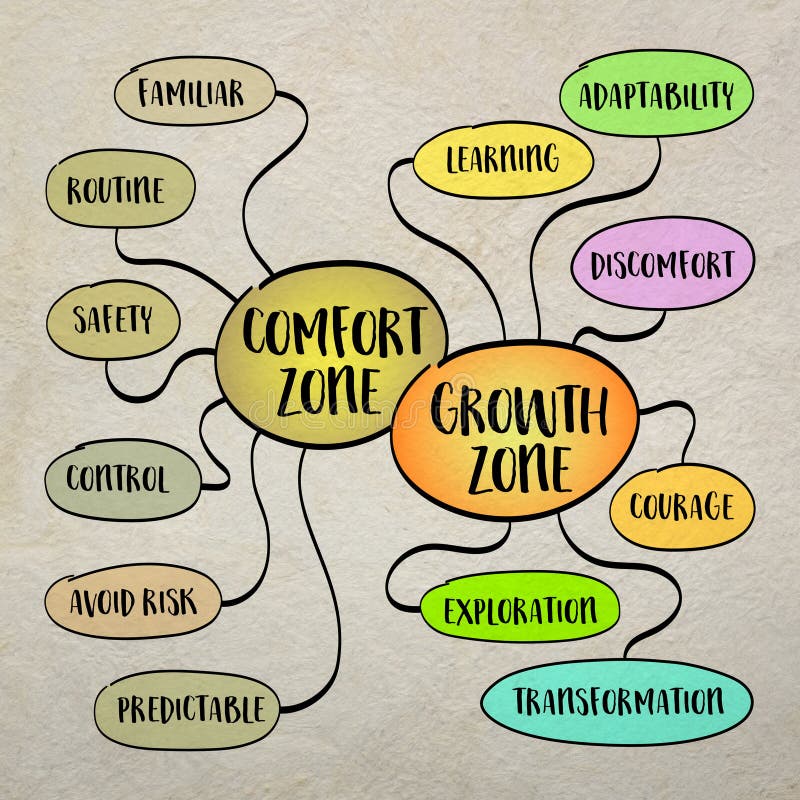 FAMILIAR
ROUTINE
SAFETY
CONTROL
AVOID RISK
PREDICTABLE
COMFORT
ZONE
GROWTH
ZONE
LEARNING
ADAPTABILITY
DISCOMFORT
COURAGE
EXPLORATION
TRANSFORMATION